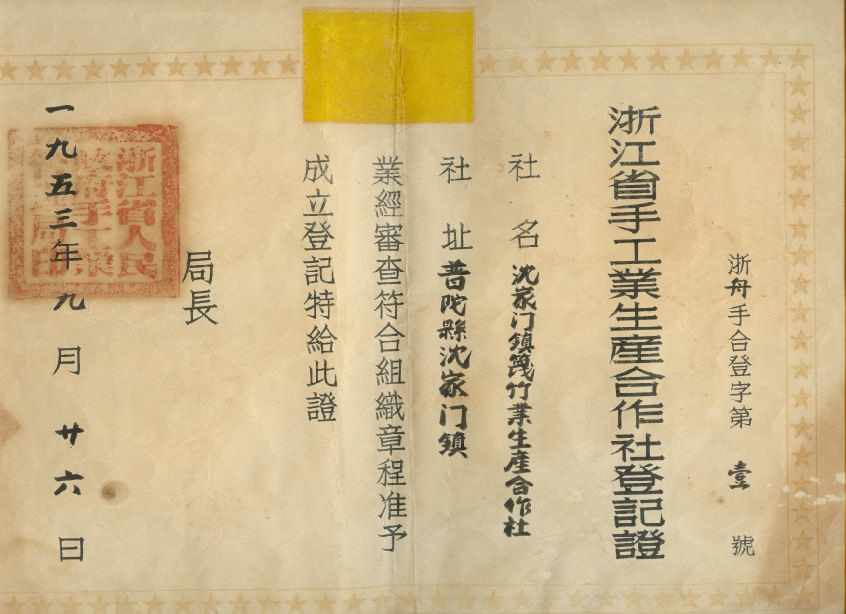 浙舟手合登字第壹號
浙江省手工業生産合作社登記證
社名 沈家门鎮篾竹業生産合作社
社址 普陀縣沈家门鎮
業經審查符合組織章程准予
成立登記特給此證
局長
一九五三年九月廿六日
浙江省人民